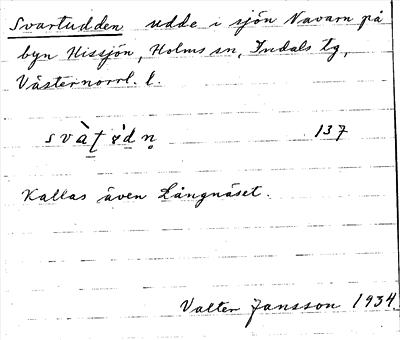 Svartudden udde i sjön Navarn på
byn Hissjön, Holms sn, Indals tg,
Västernorrl. l.
137
Kallas även Långnäset.
Valter Jansson 1934.